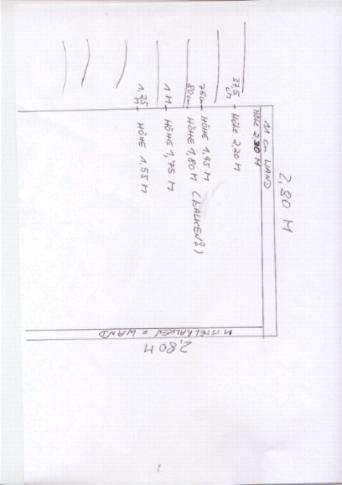 2,80 M
11 cm WAND
HÖHE 2,30 M
37,5 cm - HÖHE 2,20 M
75 cm - HÖHE 1,95 M
80 cm - HÖHE 1,80 M (BALKEN?)
1 M - HÖHE 1,75 M
1,25 M - HÖHE 1,55 M
MITTELBALKEN = WAND
2,80 M